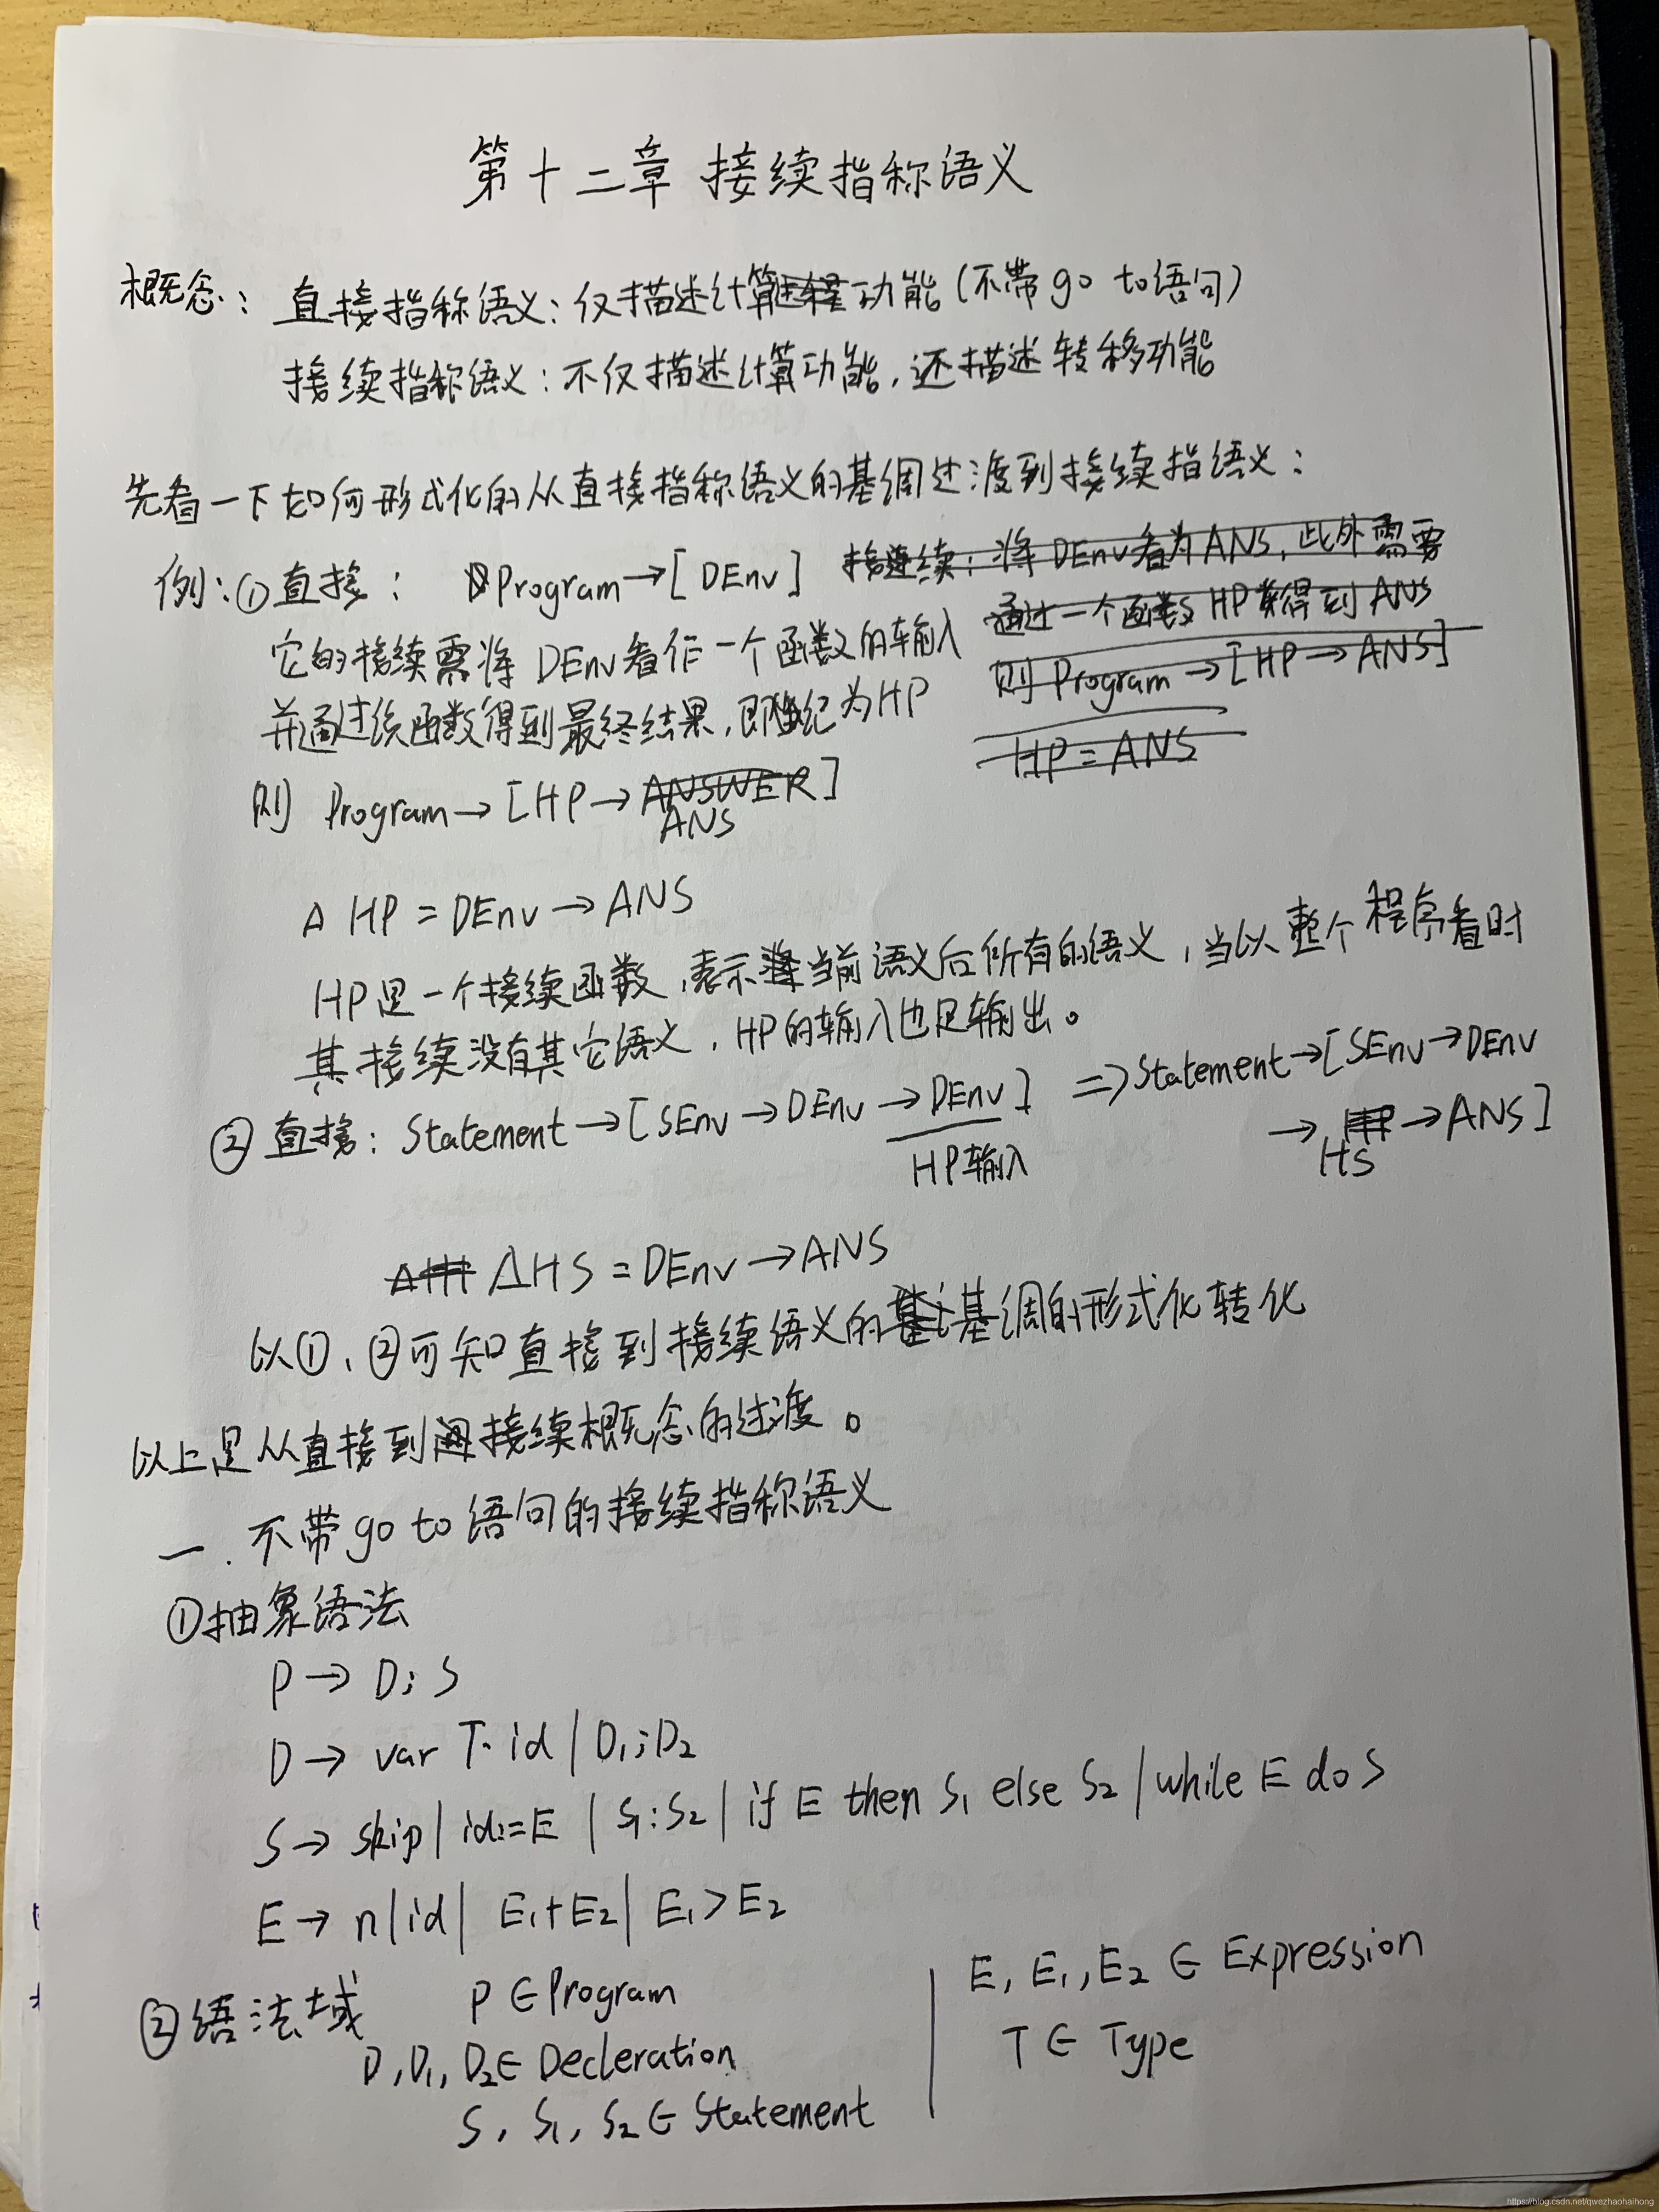 第十二章 接续指称语义
概念: 直接指称语义:仅描述计算过程功能(不带go to语句)
接续指称语义:不仅描述计算功能,还描述转移功能
先看一下如何形式化的从直接指称语义的基调过渡到接续指语义:
例:①直接: Program→[DEnv] 接连续:将DEnv看为ANS,此外需要
通过一个函数HP获得到ANS
它的接续需将DEnv看作一个函数的输入
则Program→[HP→ANS]
并通过该函数得到最终结果,即纪为HP
HP=ANS
则 Program→[HP→ANSWER]
ANS
△ HP=DEnv→ANS
HP是一个接续函数,表示当前语义后所有的语义,当以整个程序看时
其接续没有其它语义,HP的输入也是输出。
②直接:Statement→[SEnv→DEnv→DEnv] ⇒Statement→[SEnv→DEnv
→HS→ANS]
HP输入
△HS=DEnv→ANS
以①、②可知直接到接续语义的基调的形式化转化
以上是从直接到接续概念的过渡。
一.不带go to语句的接续指称语义
①抽象语法
P→D;S
D→var T·id|D₁;D₂
S→skip|id:=E|S₁;S₂|if E then S₁ else S₂|while E do S
E→n|id|E₁+E₂|E₁>E₂
②语法域 P∈Program
D,D₁,D₂∈Decleration
S,S₁,S₂∈Statement
E,E₁,E₂∈Expression
T∈Type
https://blog.csdn.net/qwezhaohaihong